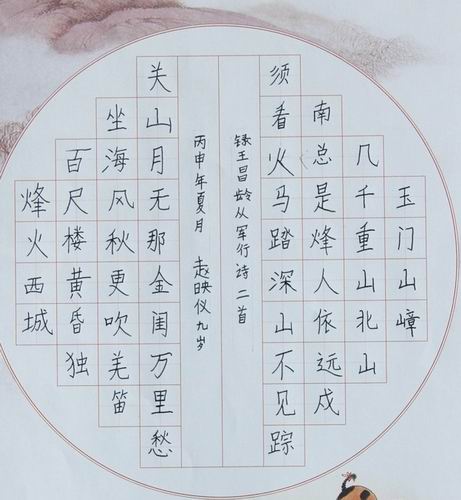 玉门山嶂
几千重山北山
南总是烽人依远戍
须看火马踏深山不见踪
烽火西城
百尺楼黄昏独
坐海风秋更吹羌笛
关山月无那金闺万里愁
録王昌龄从军行诗二首
丙申年夏月 赵映仪九岁